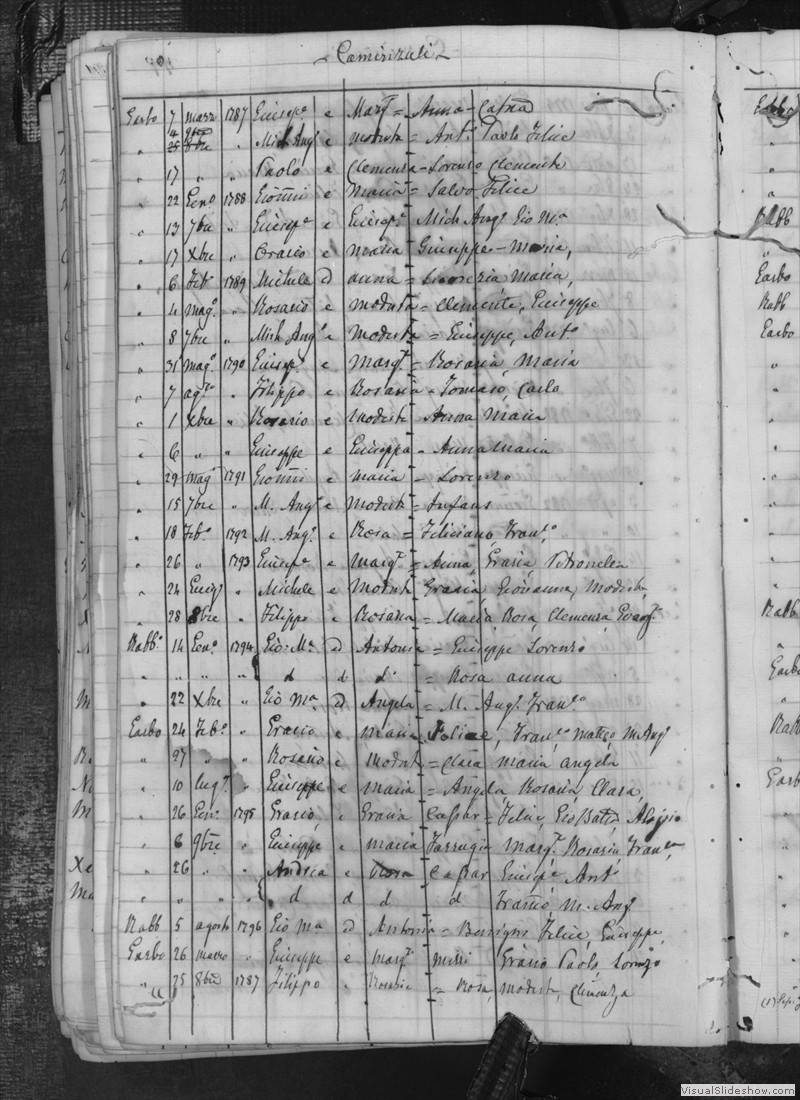 Caminzuli
Garbo 7 marz 1787 Giusepe e Margta = Anna Catna
4 9bre
" 25 8bre " Mich Angl e modesta = Anto Paolo Felice
" 17 " " Paolo e Clemenza = Lorenzo Clemente
" 22 Geno 1788 Gioanni e Maria = Salvo Felice
" 13 7bre " Giusepe e Giusepa Mich Angl Gio Ma
" 17 Xbre " Orazio e Maria Giuseppe - Maria,
" 6 Febo 1789 Michele d anna = Lucrezia Maria,
" 4 mago " Rosario e modesta = Clemente, Giuseppe
" 8 7bre " Mich Angl e Modesta = Giuseppe, Anto
" 31 mago 1790 Giusepe e Margta = Rosaria, Maria
" 7 agto " Filippo e Rosaria = Tomaso, Carlo
" 1 Xbre " Rosario e modesta Anna Maria
" 6 " " Giuseppe e Giuseppa = Anna Maria
" 29 mago 1791 Gioanni e maria = Lorenzo
" 15 7bre " M. Angl e modesta = Infans
" 18 Febo 1792 M. Angl e Rosa = Feliciano, Franco
" 26 " 1793 Giusepe e Margta = Anna, Grazia, Petronela
" 24 Giugo " Michele e Modesta Grazia, Giovanna, Modesta,
" 28 8bre " Filippo e Rosaria = Maria, Rosa, Clemenza,
Rabbo 14 Geno 1794 Gio: Ma d Antonia = Giuseppe Lorenzo
" " " " d d do = Rosa anna
" 22 Xbre " Gio Ma d Angela = M. Angl Franco
Garbo 24 Febo " Grazio e Maria Felice, Franco Matteo M. Angl
" 27 " " Rosario e Modesta = Clara maria angela
" 10 lugo " Giuseppe e maria = Angela Rosaria, Clara,
" 26 Geno 1795 Grazio, e Grazia Cassar = Felice, Gio Batta, Aloisio
" 6 9bre " Giuseppe e maria Farrugia Margta Rosaria, Franca,
" 26 " " Andrea e Rosa Cassar Giusepe Anto
" " " " d d d d M. Angl
Rabb 5 agosto 1796 Gio Ma d Antonia = Felice, Giuseppe,
Garbo 26 marzo " Giuseppe e margta Grazio Paolo, Lorenzo
" 25 8bre 1787 Filippo " Rosaria = Rosa, modesta, Clemenza
Garbo
Rabb
Garbo
Rabb
Garbo
Rabb
Garbo
Rabb
Garbo
VisualSlideshow.com